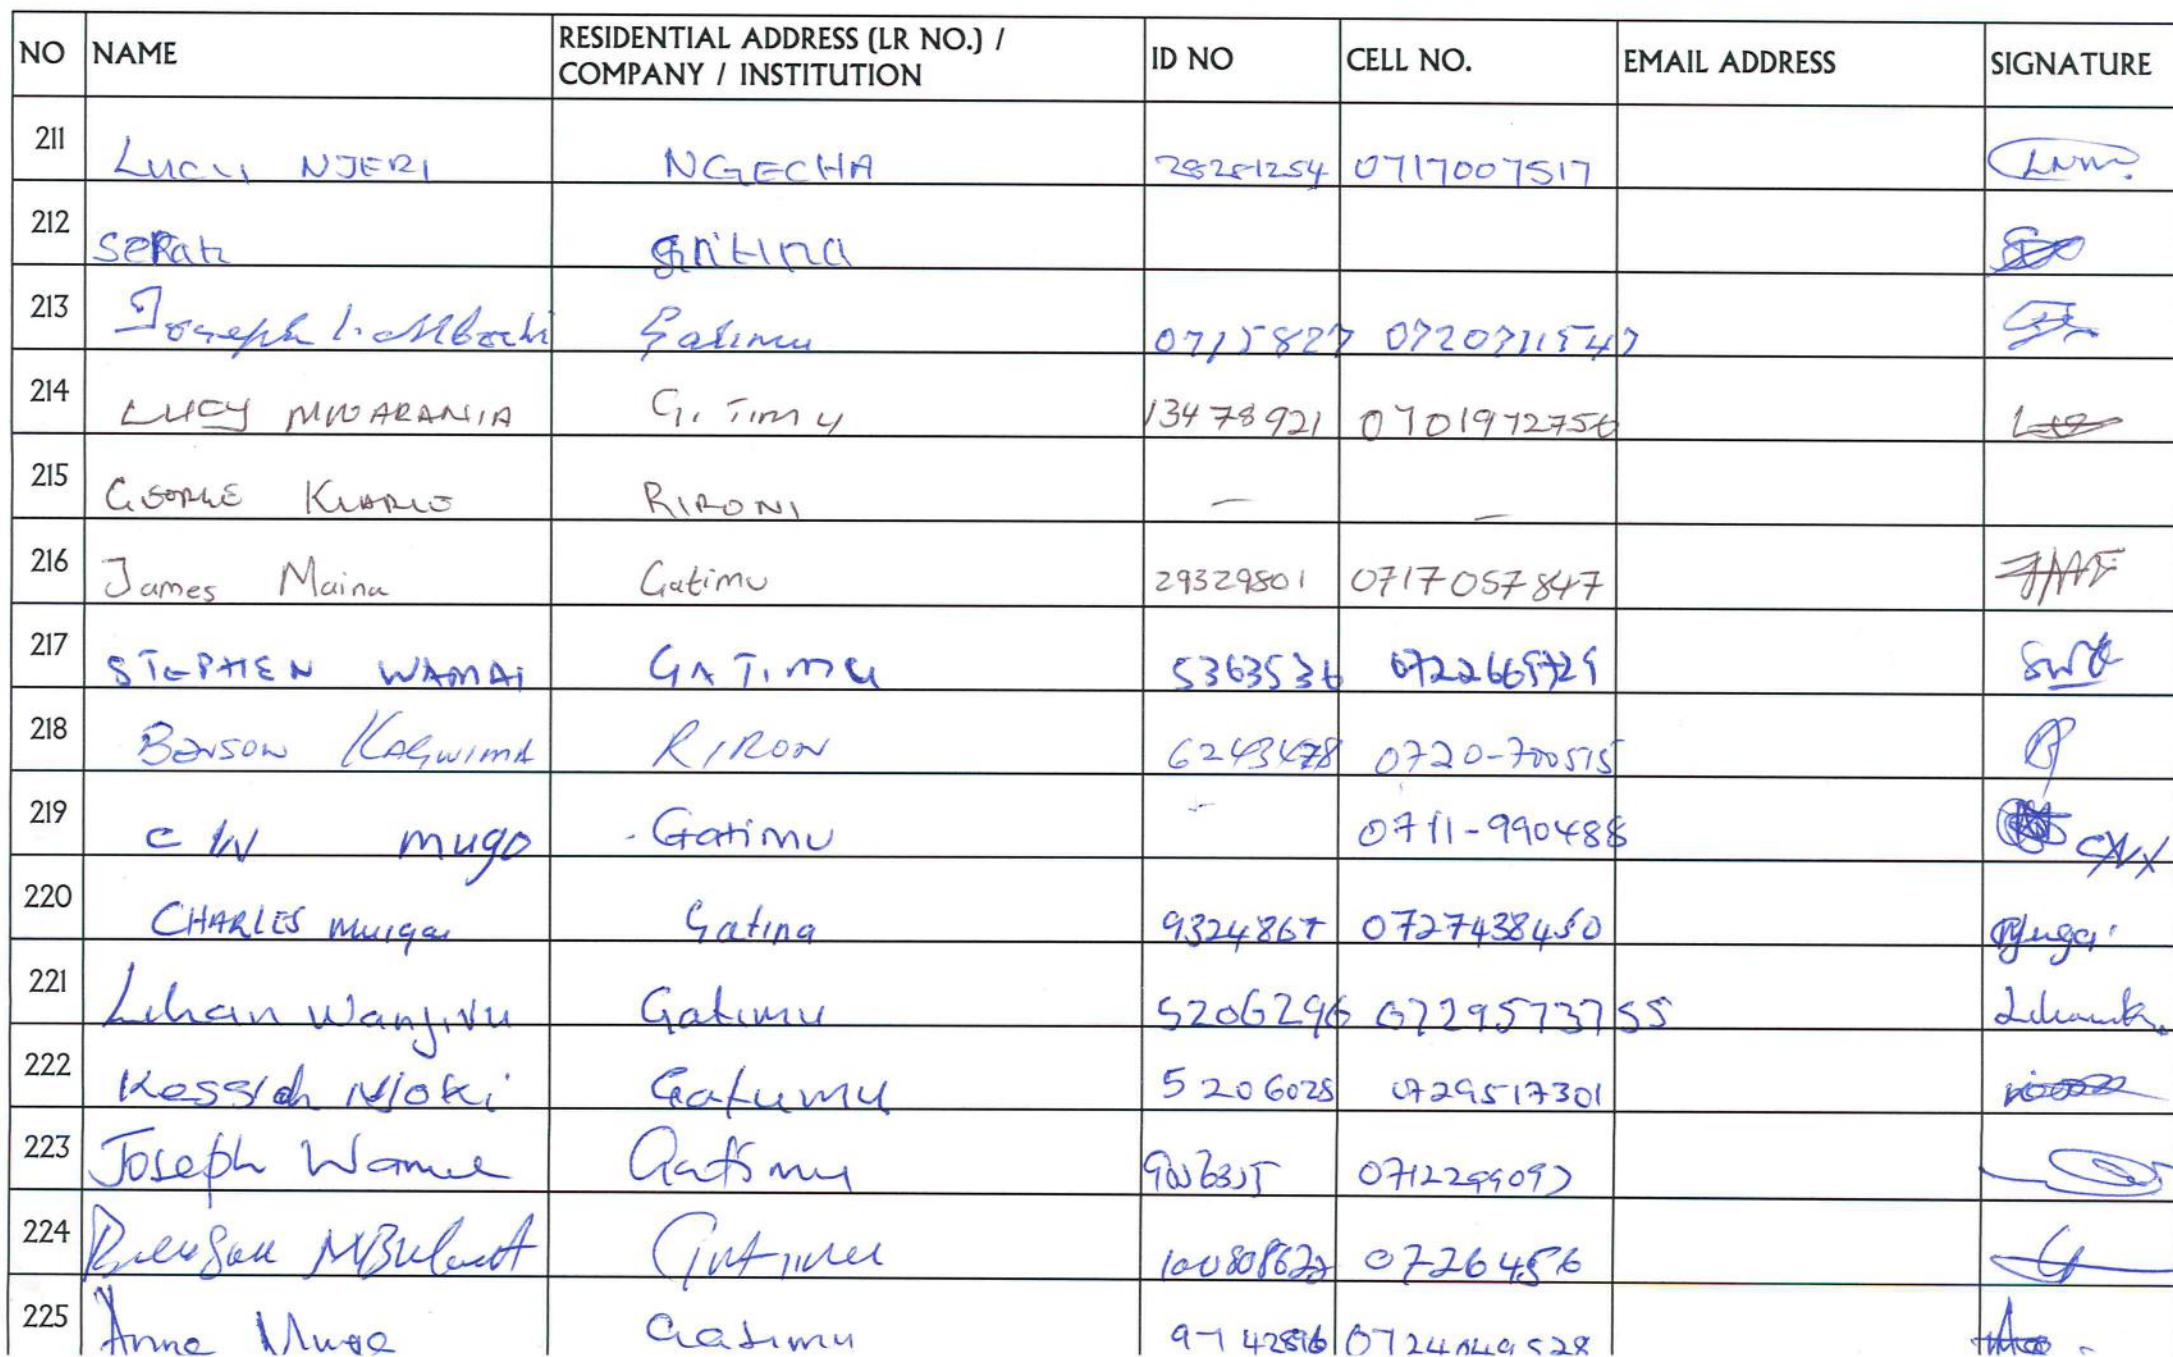 NO NAME RESIDENTIAL ADDRESS (LR NO.) / COMPANY / INSTITUTION ID NO CELL NO. EMAIL ADDRESS SIGNATURE
211 Lucy NJERI NGECHA 28281254 0717007517
212 SERah
213 Joseph Gatimu 0720711547
214 LUCY MWARANIA GITIMU 13478921 0701972756
215 GEORGE KUARIE RIRONI — —
216 James Maina Gatimu 29329801 0717057847
217 STEPHEN WAMAI GATIMU 5363536
218 BENSON KAGWIMA RIRON 6243478 0720-700515
219 C W mugo Gatimu - 0711-990488
220 CHARLES Muigai Gatina 9324867 0727438450
221 Lilian Wanjiru Gatimu 5206296 0729573755
222 Kessiah Njoki Gatumu 5206028 0729517301
223 Joseph Wamue Gatimu 0712299097
224 Gatimu 0726456
225 Anne Gatimu